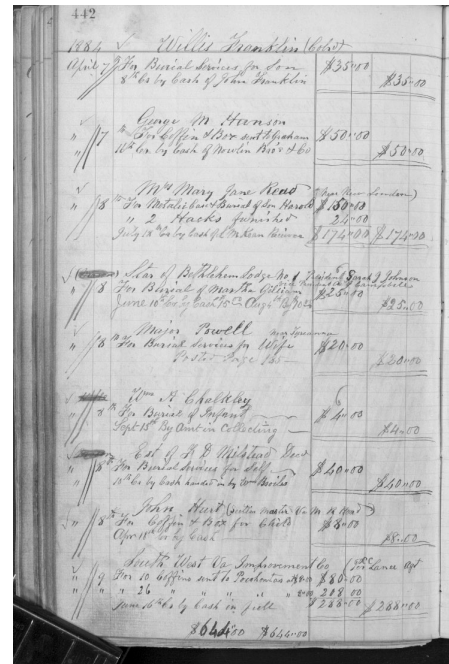 442
1884 Willis Franklin (Col'd)
April 7 For Burial Services for Son $35.00
8th Cr by Cash of John Franklin $35.00
George M Hanson
" 7 For Coffin & Box sent to Graham $50.00
Cr. by Cash of Nowlin Bro's & Co $50.00
Mrs Mary Jane Read (Near New London)
" 8 For Metalic Case & Burial of Son Harold $150.00
" 2 Hacks furnished 24.00
July 18th Cr by Cash of $174.00 $174.00
Star of Bethlehem Lodge No 1 President Sarah J Johnson
" 8 For Burial of Martha Gilliam $25.00
June 10th Cr by Cash $25.00
Major Powell
" 8th For Burial Services for Wife $20.00
Posted Page $20.00
Wm A Chalkley
" 8th For Burial of Infant $4.00
Sept 15th By Amt in $4.00
Est of R D Milstead Decd
" 8th For Burial Services for Self $40.00
Cr by Cash handed in by Wm $40.00
John Hurt (
" 8th For Coffin & Box for Child $8.00
Apr Cr by Cash $8.00
South West Va Improvement Co Agt
" 9 For 10 Coffins sent to Pocahontas at 8.00 $80.00
" " 26 " " " " " 8.00 208.00
June 16th Cr by Cash in full $288.00 $288.00
$644.00 $644.00